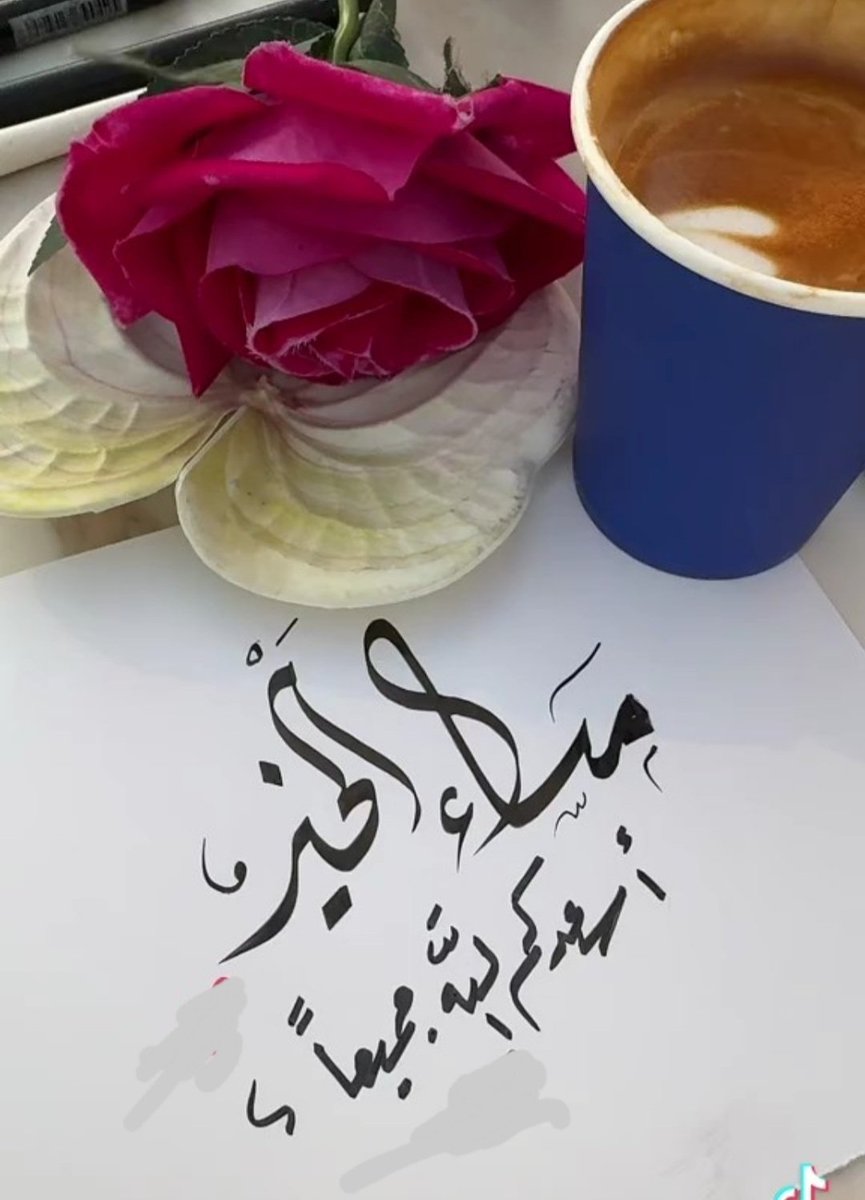 مساء الخير
أسعدكم الله جميعاً